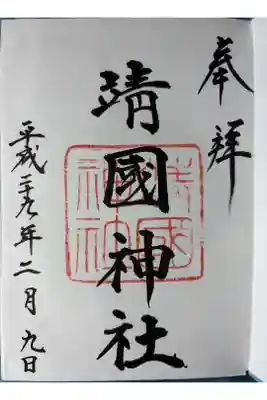 奉拜
靖國神社
平成二十九年二月九日
靖國神社